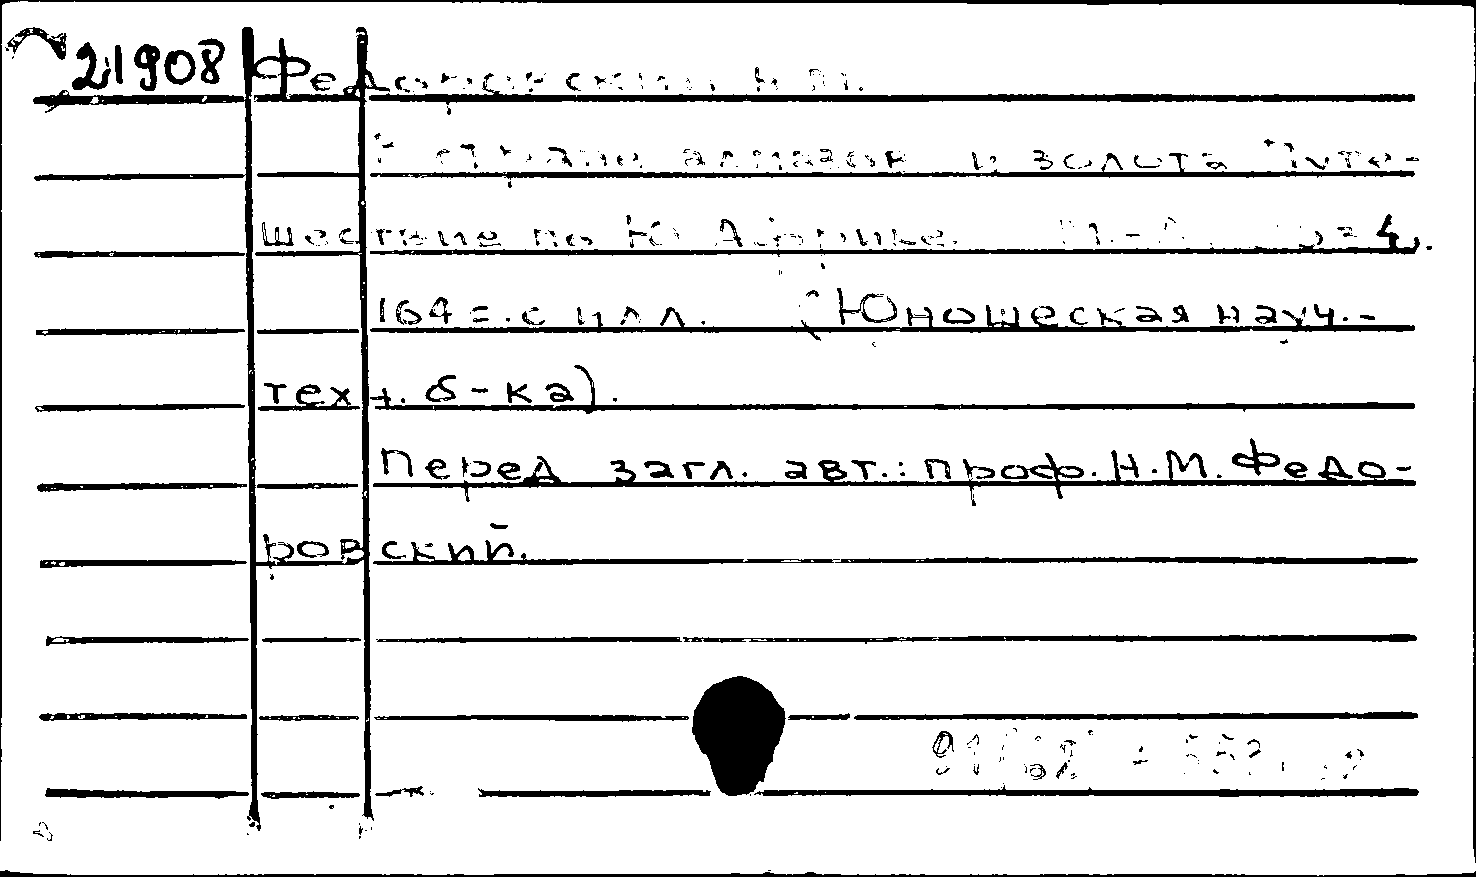 21908 Федоровский Н.М.
В стране алмазов и золота Путе-
шествие по Ю Африке. М.-Л.
164 с. с илл. (Юношеская науч.-
техн. б-ка).
Перед загл. авт.: проф. Н.М. Федо-
ровский.